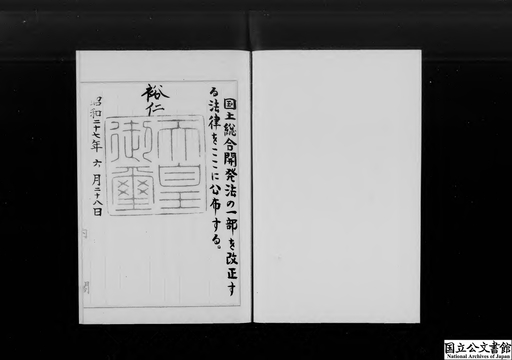 国土総合開発法の一部を改正す
る法律をここに公布する。
裕仁
天皇
御璽
昭和二十七年 六月二十八日
国立公文書館
National Archives of Japan